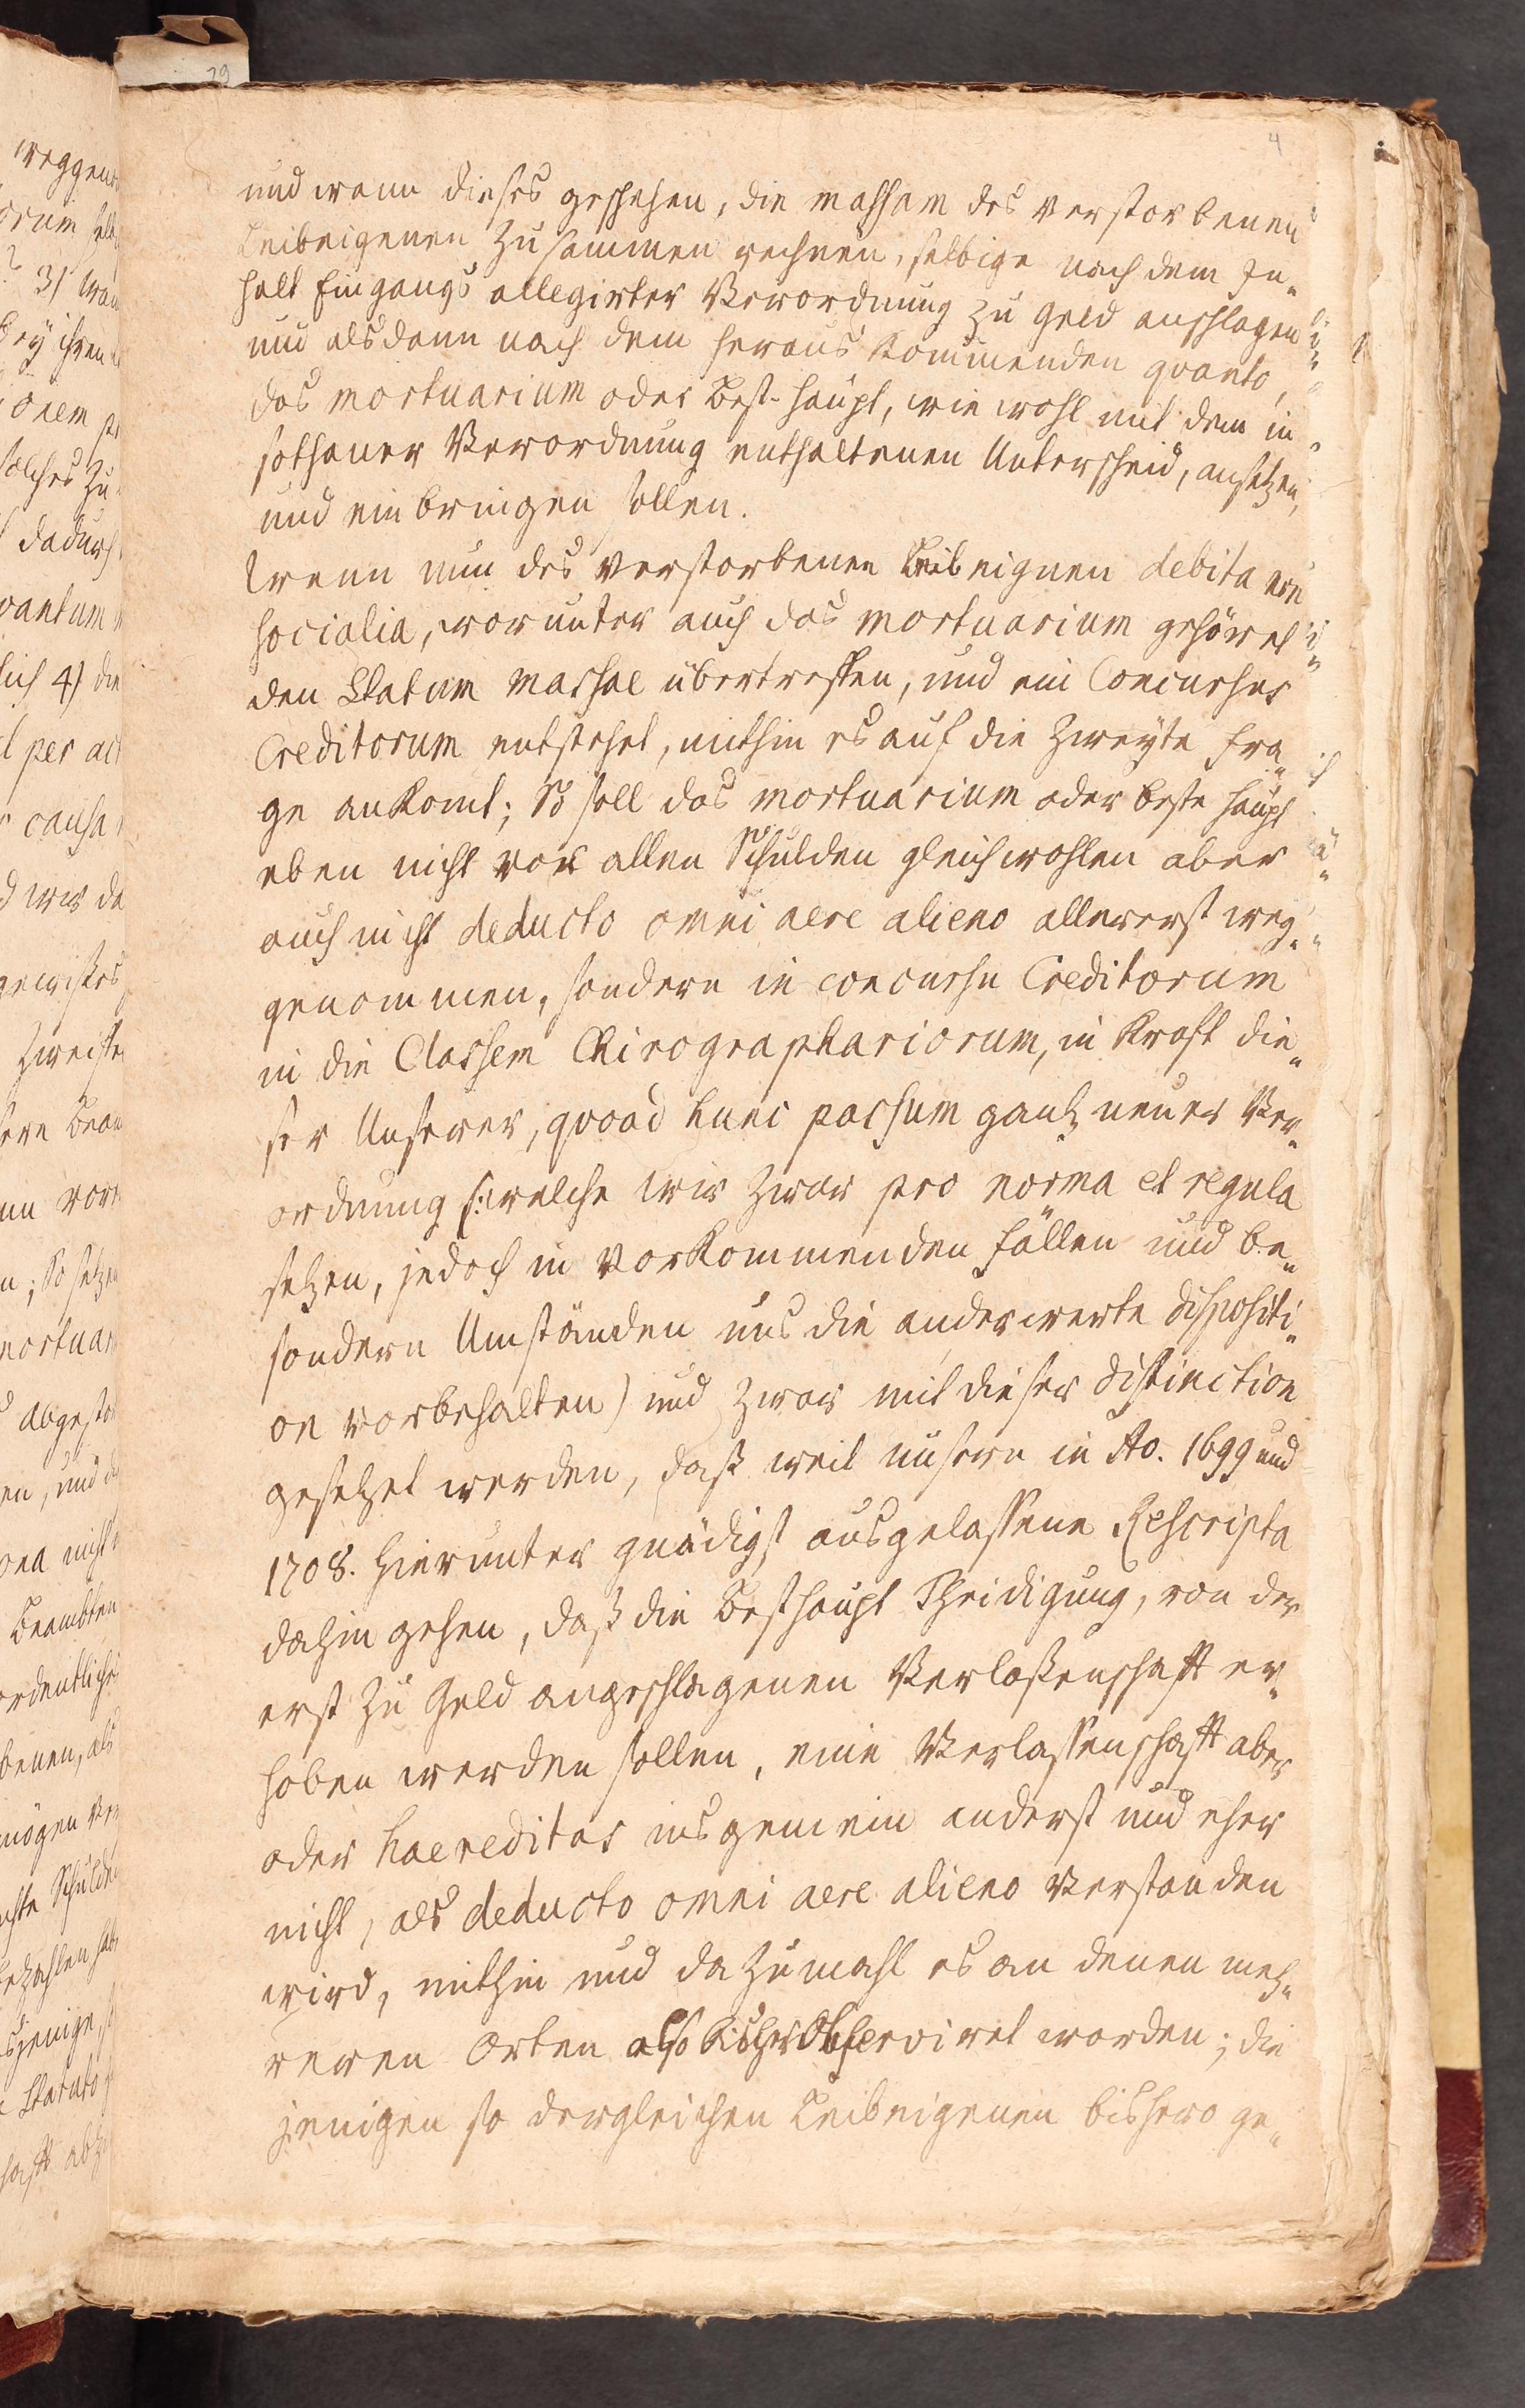 4
und wann dieses geschehen, die massam des verstorbenen
Leibeigenen zusammen rechnen, selbige nach dem In„
halt Eingangs allegirter Verordnung zu Geld anschlagen
und alsdann nach dem heraus kommenden quanto,
das mortuarium oder Best-haupt, wie wohl mit dem in
sothaner Verordnung enthaltenen Unterscheid, ansetzen,
und einbringen sollen.
Wenn nun des verstorbenen Leibeignen debita non
socialia, worunter auch das mortuarium gehöret
den Statum massae übertreffen, und ein Concursus
Creditorum entstehet, mithin es auf die Zweyte Fra„
ge ankomt; So soll das mortuarium oder beste haupt
eben nicht vor allen Schulden gleichwohlen aber
auch nicht deducto omni aere alieno allererst weg„
genommen, sondern in concursu Creditorum
in die Classem Chirographariorum, in Kraft die„
ser Unserer, quoad hunc passum gantz neuer Ver„
ordnung (:welche wir zwar pro norma et regula
setzen, jedoch in vorkommenden Fällen und be„
sondern Umständen uns die anderwerte dispositi„
on vorbehalten) und zwar mit dieser distinction
gesetzet werden, daß weil unsere in Ao. 1699 und
1708. hierunter gnädigst ausgelassene Rescripta
dahin gehen, daß die Besthaupt Theidigung, von der
erst zu Geld angeschlagenen Verlaßenschafft er„
hoben werden sollen, eine Verlassenschafft aber
oder haereditas insgemein anderst und eher
nicht, als deducto omni aere alieno verstanden
wird, mithin und da zumahl es an denen meh„
reren Orten also bisher observiret worden; die
jenigen so dergleichen Leibeigenen bishero ge„